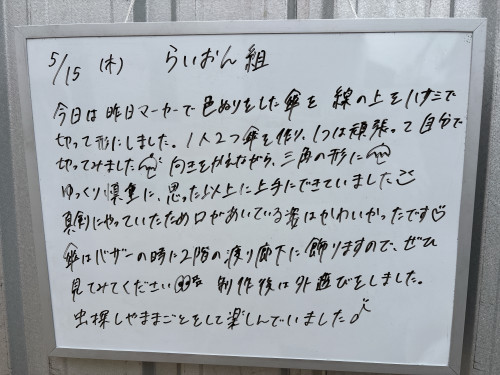 5/15 (木) らいおん組
今日は昨日マーカーで色ぬりをした傘を線の上をハサミで
切って形にしました。1人2つ傘を作り、1つは頑張って自分で
切ってみました 向きをかえながら、三角の形に
ゆっくり慎重に、思った以上に上手にできていました
真剣にやっていたため口があいている姿はかわいかったです
傘はバザーの時に2階の渡り廊下に飾りますので、ぜひ
見てみてください 制作後は外遊びをしました。
虫探しやままごとをして楽しんでいました♪